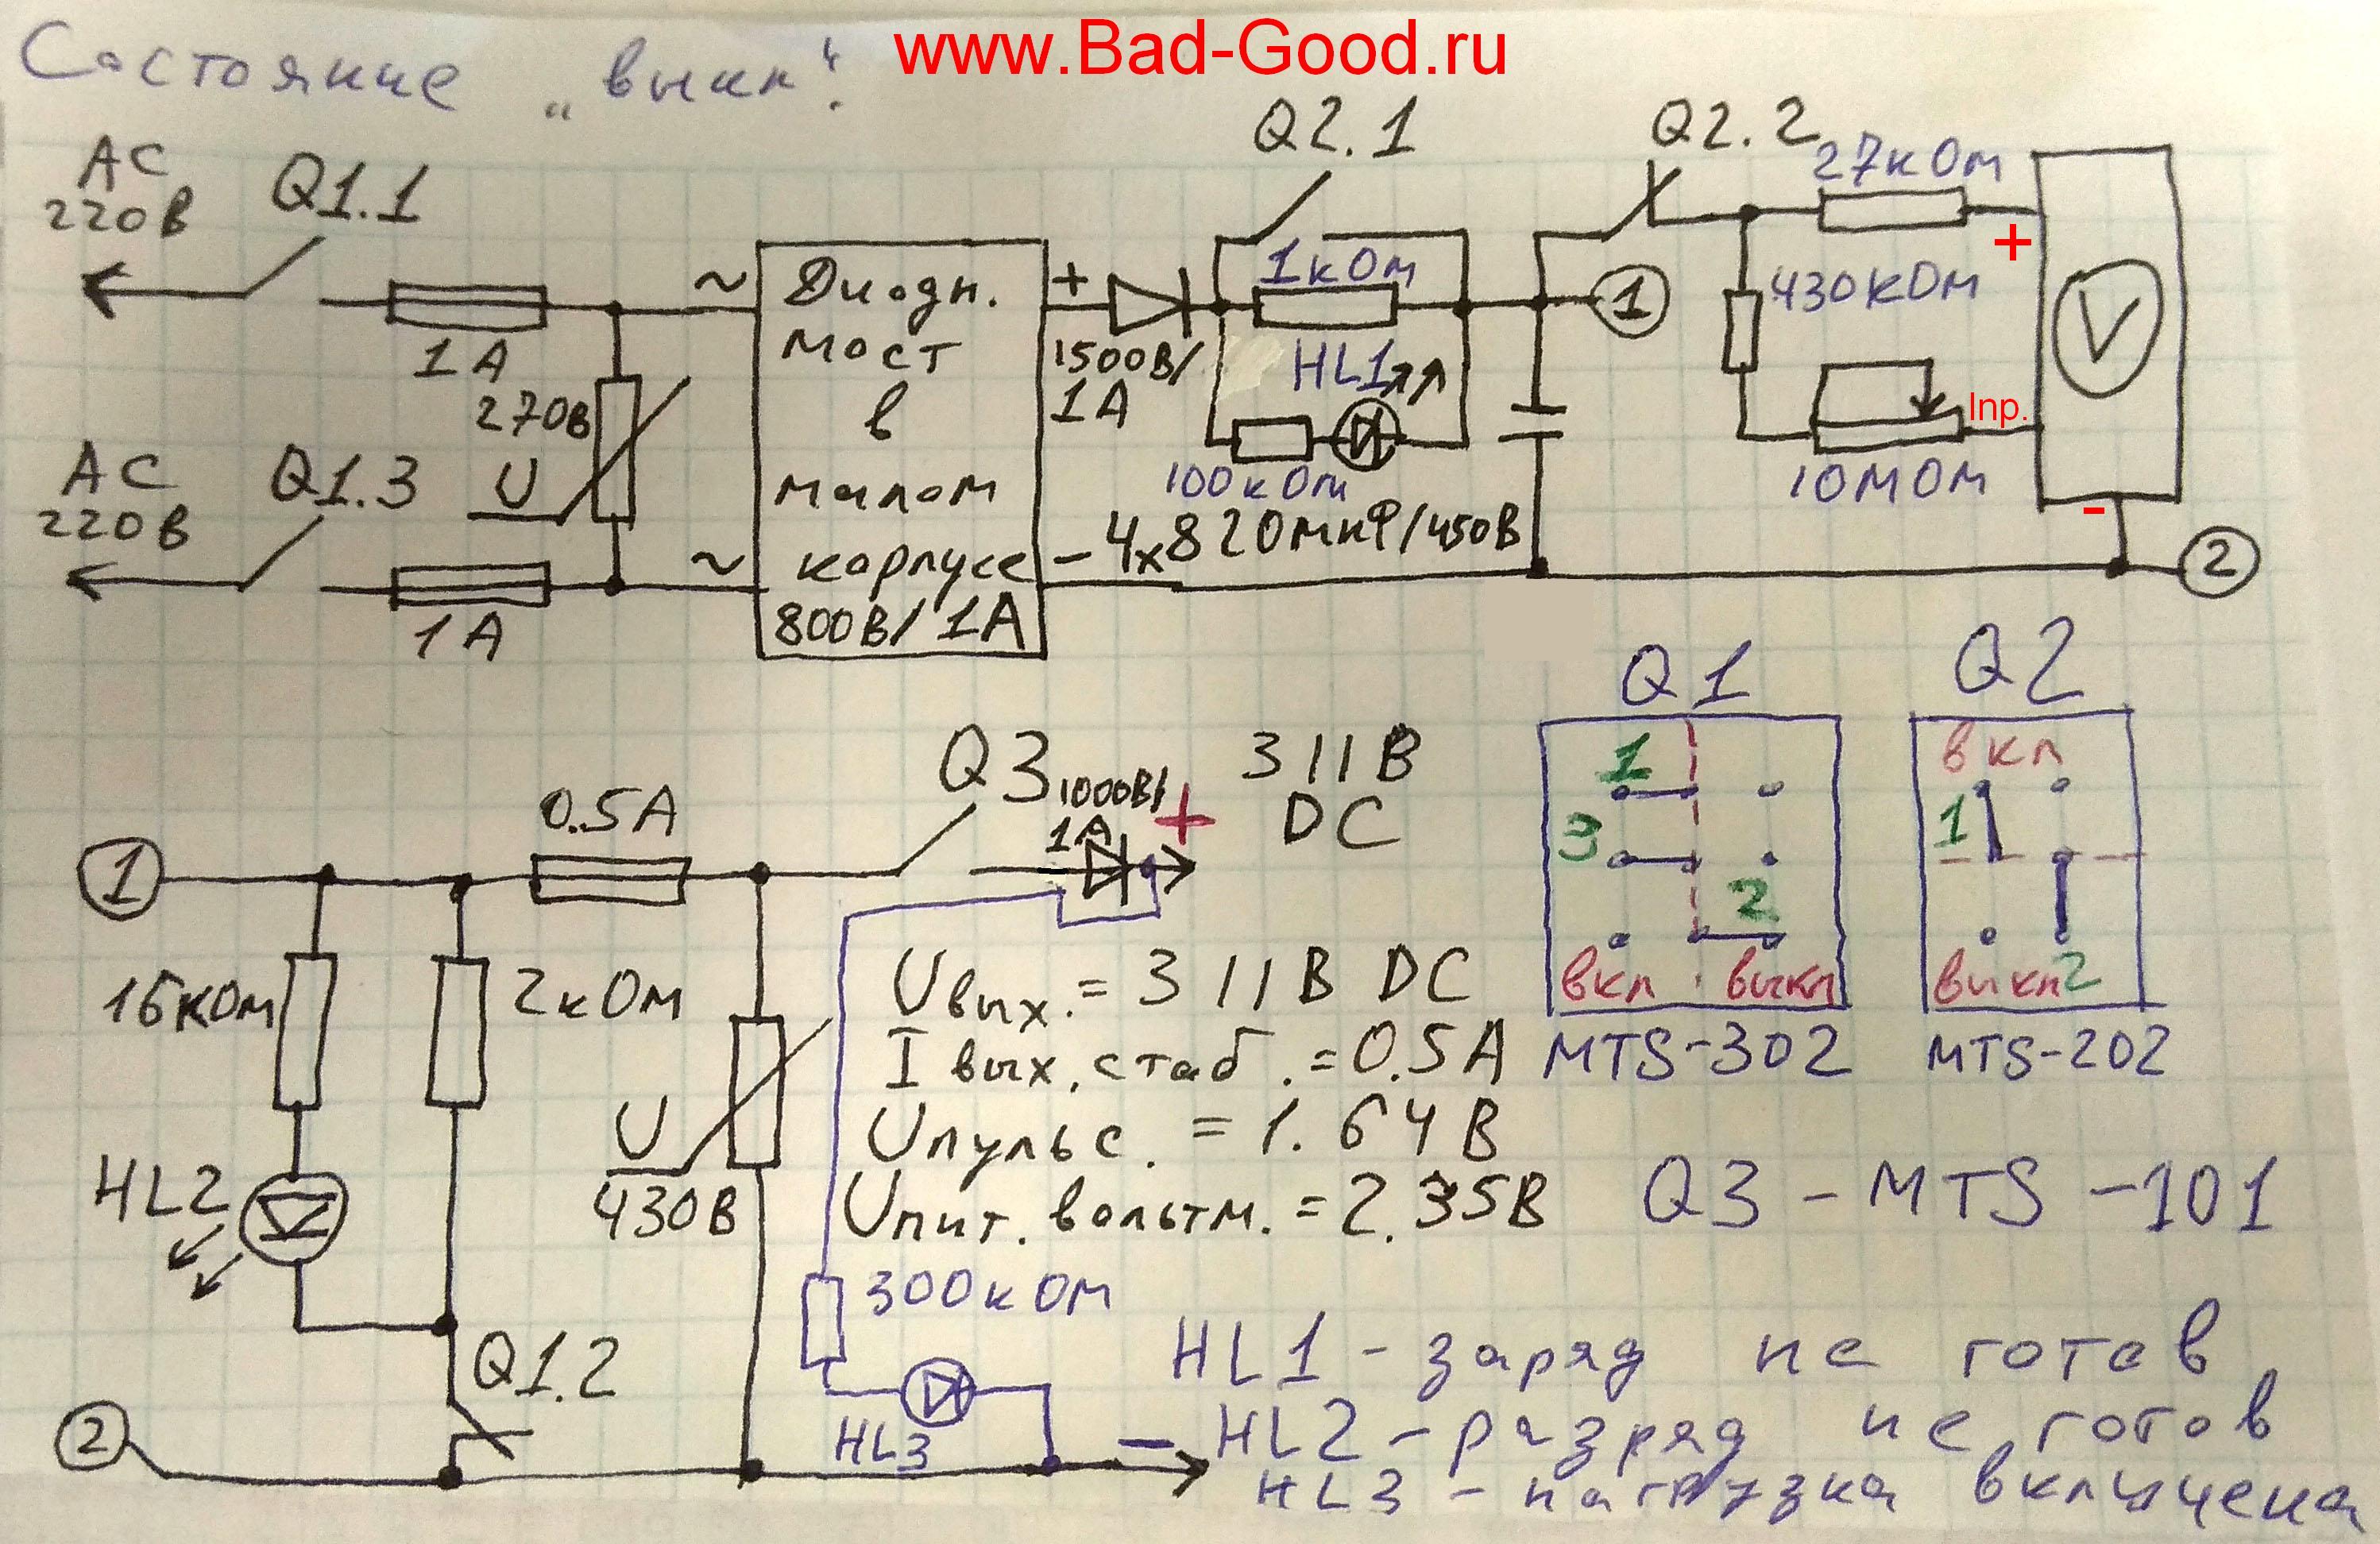 www.Bad-Good.ru
Состояние „выкл“.
AC
220В
Q1.1
1А
270В
U
AC
220В
Q1.3
1А
~
~
Диодн.
мост
в
малом
корпусе
800В/1А
+
-
1500В/
1А
Q2.1
1кОм
HL1
100кОм
4x820мкФ/450В
Q2.2
27кОм
430кОм
10МОм
+
Inp.
-
V
1
2
1
0.5А
Q3
1000В/
1А
+
311В
DC
16кОм
2кОм
HL2
U
430В
Q1.2
2
Uвых. = 311В DC
Iвых.стаб. = 0.5А
Uпульс. = 1.64В
Uпит. вольтм. = 2.35В
300кОм
HL3
-
Q1
1
3
2
вкл
выкл
MTS-302
Q2
вкл
1
выкл
2
MTS-202
Q3 - MTS -101
HL1 - заряд не готов
HL2 - разряд не готов
HL3 - нагрузка включена